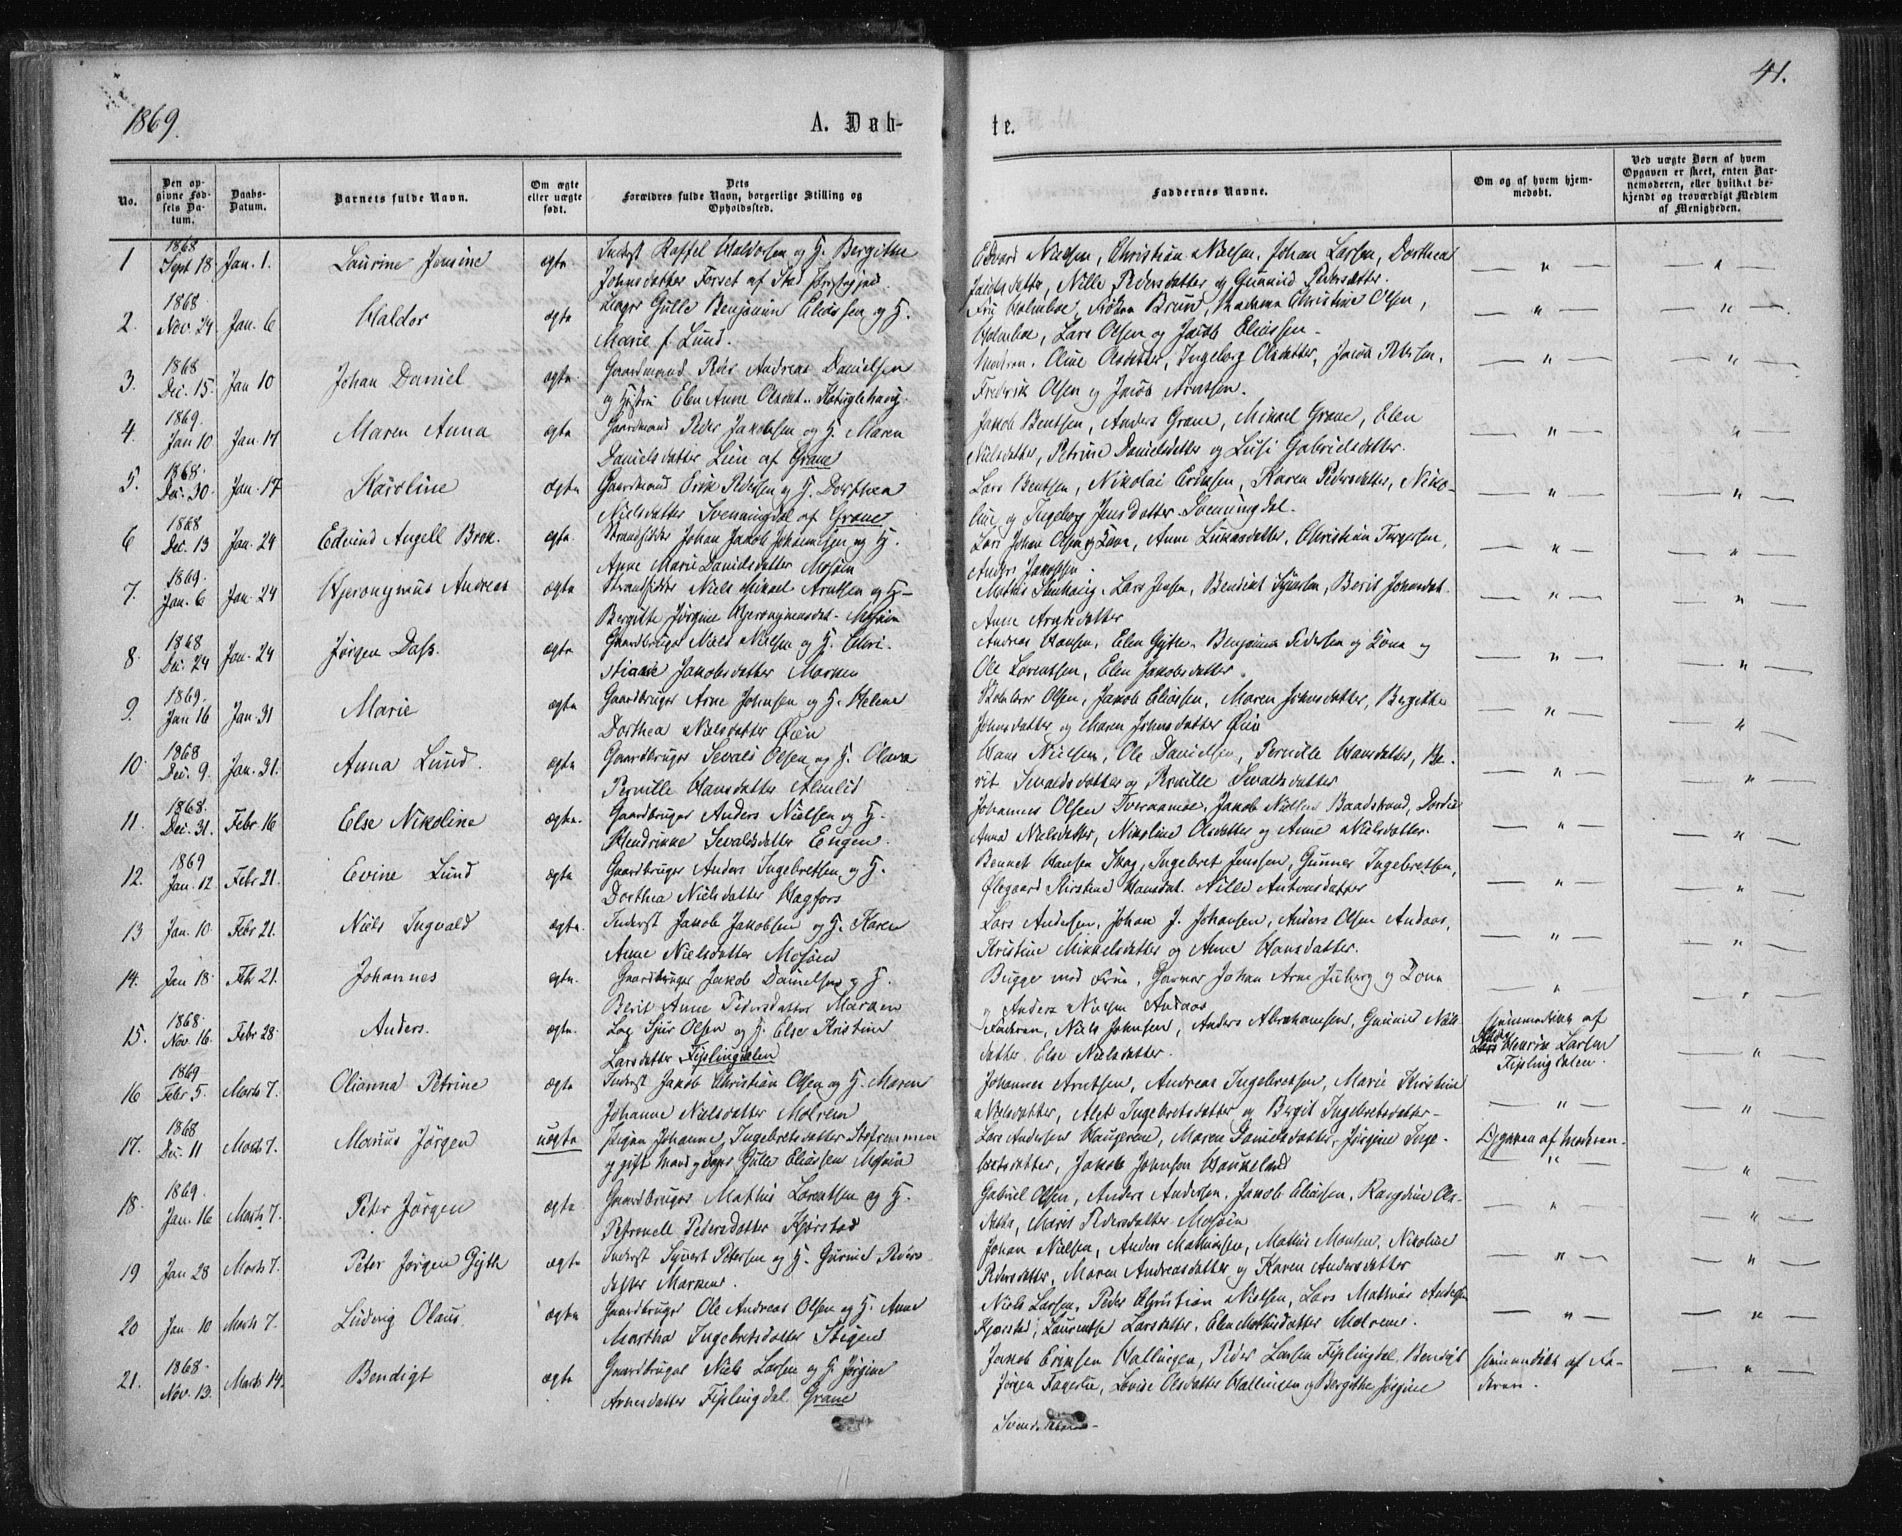 1869.
A. Døb-
te.
41.
No.
Den op-
givne Fød-
sels Da-
tum.
Daabs-
Datum.
Barnets fulde Navn.
Om ægte
eller uægte
født.
Dets
Forældres fulde Navn, borgerlige Stilling og
Opholdssted.
Faddernes Navne.
Om og af hvem hjem-
medøbt.
Ved uægte Børn af hvem
Opgaven er skeet, enten Bar-
nemoderen, eller hvilket be-
kjendt og troværdigt Medlem
af Menigheden.
1 1868 Sept 18 Jan. 1. Laurine Jensine ægte Inderst Haldorsen og H. Bergitte
Johnsdatter Forset af
Edvard Nielsen, Christian Nielsen, Johan Larsen, Dorthea
Nille Pedersdatter og Gunnild Pedersdatter.
2. 1868 Nov. 24 Jan. 6 Haldor ægte Gulle Benjamin Eliassen og H.
Marie f. Lund.
Fru Holmboe, Frøken Brun, Madam Christine Olsen,
Holmboe, Lars Olsen og Jacob Eliassen.
3. 1868 Dec. 15. Jan 10 Johan Daniel ægte Gaardmand Andreas Danielsen
og Hustru Elen Anne Olsdat.
Modren, Oline Olsdatter, Ingeborg Olsdatter, Jacob Petersen,
Frederik Olsen og Jacob Arntsen.
4. 1869. Jan 10 Jan. 17 Maren Anna ægte Gaardmand Peder Jakobsen og H. Maren
Danielsdatter Lien af Grane
Jakob Bentsen, Anders Grane, Mikael Grane, Elen
Nielsdatter, Petrine Danielsdatter og Lusi Gabrielsdatter.
5. 1868. Dec. 30. Jan. 17 Karoline ægte Gaardmand Erik Pedersen og H. Dorthea
Nielsdatter Svenningdal af Grane
Lars Bentsen, Nikolai Eriksen, Karen Pedersdatter, Niko-
line og Ingeborg Jensdatter Svenningdal.
6 1868 Dec. 13 Jan. 24 Edvind Angell Brok. ægte Strandsidder Johan Jakob Johannesen og H.
Anne Marie Davidsdatter Mosjøen
Lars Johan Olsen og Kone, Anne Lukasdatter, Christian Torgersen,
Anders Jakobsen.
7. 1869. Jan. 6 Jan. 24 Hjeronymus Andreas ægte Strandsidder Niels Mikael Arntsen og H.
Bergitte Jørgine Hjeronymusdat. Mosjøen
Lars Jensen, Bendikt Berit Johansdat.
Anne Arntsdatter
8. 1868 Dec. 24 Jan. 24 Jørgen Dass. ægte Gaardbruger Niels Nielsen og H. Chri-
stiane Jakobsdatter Marken
Andreas Hansen, Elen Gjytte, Benjamin Pedersen og Kone og
Ole Lorentsen, Elen Jakobsdatter.
9. 1869. Jan 16 Jan. 31 Marie ægte Gaardbruger Arne Johnsen og H. Helene
Dorthea Nielsdatter Øien
Olsen, Jakob Eliassen, Maren Johnsdatter, Bergitte
Johnsdatter og Maren Johnsdatter Øien
10. 1868 Dec. 9. Jan. 31. Anna Lund. ægte Gaardbruger Sevald Olsen og H. Olava
Pernille Hansdatter Almlid
Hans Nielsen, Ole Danielsen, Pernille Hansdatter, Be-
rit Sevaldsdatter og Pernille Sevaldsdatter
11. 1868. Dec. 31. Febr 16 Else Nikoline ægte. Gaardbruger Anders Nielsen og H.
Hendrikke Sevaldsdatter Engen
Johannes Olsen Tveraamoe, Jakob Nielsen Baadstrand,
Anna Nielsdatter, Nikoline Olsdatter og Anne Nielsdatter.
12. 1869 Jan. 12 Febr 21. Evine Lund ægte Gaardbruger Anders Ingebretsen og H.
Dorthea Nielsdatter Hagfors
Bennet Hansen Skog, Ingebret Jenssen, Gunner Ingebretsen,
Ølegaard Kirstine Hansdat. Nille Antonsdatter
13 Jan. 10. Febr 21. Niels Ingvald ægte. Inderst Jakob Jakobsen og H. Karen
Anne Nielsdatter Mosjøen
Lars Andersen, Johan J. Johansen, Anders Olsen Andaas,
Kristine Mikkelsdatter og Anne Hansdatter.
14. Jan 18. Febr 21. Johannes ægte. Gaardbruger Jakob Danielsen og H.
Berit Anne Pedersdatter Marken
Bugge med Frue, Garver Johan Arne Juberg og Kone
og Anders Nielsen Andaas
15. 1868 Nov. 16. Febr 28. Anders. ægte. Sjur Olsen og H. Else Kristine
Larsdatter Fiplingdalen
Fadren, Niels Johnsen, Anders Abrahamsen, Gunnild Niels-
datter Else Nielsdatter.
hjemmedøbt af
Henrik Larsen
Fiplingdalen.
16 1869 Febr 5. Marts 7. Olianna Petrine ægte Inderst Jakob Christian Olsen og H. Maren
Johanne Nielsdatter Molrem
Johannes Arntsen, Andreas Ingebretsen, Marie Kirstine
Nielsdatter, Alet Ingebretsdatter og Bergit Ingebretsdatter.
17. 1868 Dec. 11 Marts 7. Marius Jørgen uægte Pigen Johanne Ingebretsdatter
og gift Mand Gulle Eliassen Mosjøen
Lars Andersen Maren Danielsdatter, Jørgine Inge-
bretsdatter, Jakob Johnson
Opgaven af Modren.
18. 1869. Jan. 16 Marts 7. Peter Jørgen ægte Gaardbruger Mathis Lorentsen og H.
Petronell Pedersdatter Kjørstad
Gabriel Olsen, Anders Andersen, Jakob Eliassen, Ols-
datter, Marit Pedersdatter Mosjøen
19 Jan 28 Marts 7. Peter Jørgen Gyth ægte Inderst Sivert Petersen og H. Gurine Peders-
datter Marken.
Johan Nielsen, Anders Mathisen, Mathis Monsen, Nikoline
Pedersdatter, Maren Andreasdatter og Karen Andersdatter
20 Jan 10 Marts 7. Ludvig Olaus. ægte Gaardbruger Ole Andreas Olsen og H. Anne
Martha Ingebretsdatter Stigen
Niels Larsen, Peder Christian Nielsen, Lars Mathias Andersen
Kjørstad, Laurentse Larsdatter, Elen Mathisdatter Molrem.
21. 1868. Nov. 13. Marts 14. Bendigt ægte Gaardbruger Niels Larsen og H. Jørgine
Arnesdatter Fiplingdal Grane
Jakob Eriksen Hallingen, Peder Larsen Fiplingdal, Bendigt
Jørgen Fagerlie, Lovise Olsdatter Hallingen og Bergitte Jørgine
Svendsdatter.
hjemmedøbt af Fa-
deren.